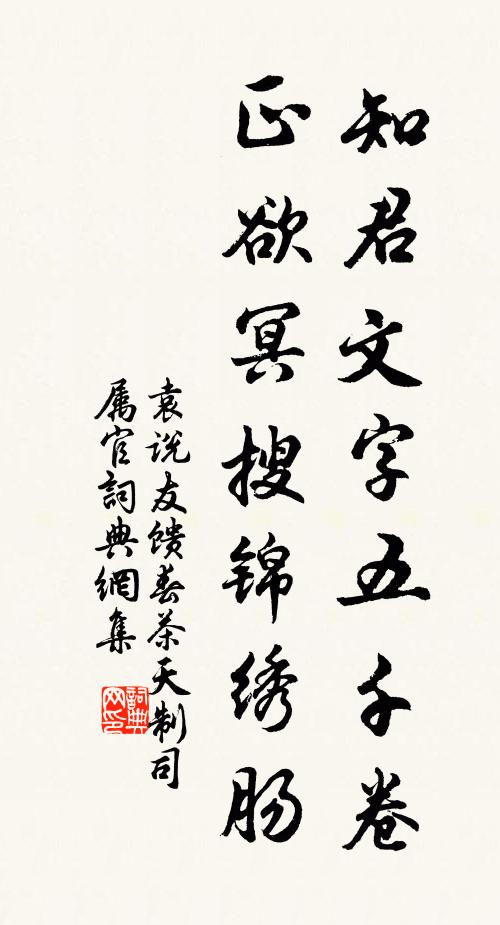 知君文字五千卷
正欲冥搜锦绣肠
袁说友馈春茶天制司
属官詞典網集
詞典网印